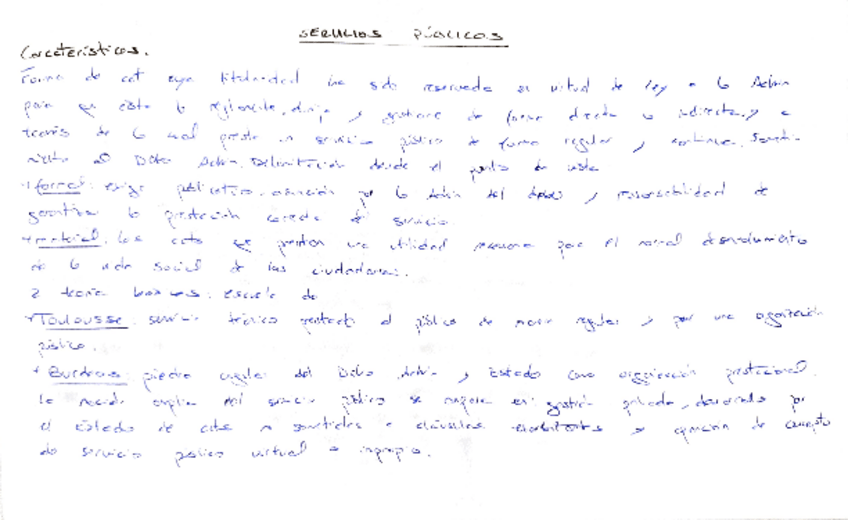 SERVICIOS PÚBLICOS
Características.
Forma de act cuya titularidad ha sido reservada en virtud de ley a la Admn
para que ésta la reglamente, dirija y gestione de forma directa o indirecta, y a
través de la cual presta un servicio público de forma regular y continua. Someti-
miento al Dcho Admn. Delimitación desde el punto de vista
formal: exige publicatio, asunción por la Admn del deber y responsabilidad de
garantizar la prestación correcta del servicio
material. los actos que prestan una utilidad necesaria para el normal desenvolvimiento
de la vida social de los ciudadanos.
2 teorías básicas: escuela de
Toulousse: servicio técnico prestado al público de manera regular y por una organización
pública.
Burdeos: piedra angular del Dcho Admn y Estado como organización prestacional.
La noción amplia del servicio público se en gestión privada, por
el Estado de sometidas a cláusulas y aparición de concepto
de servicio público virtual o impropio.